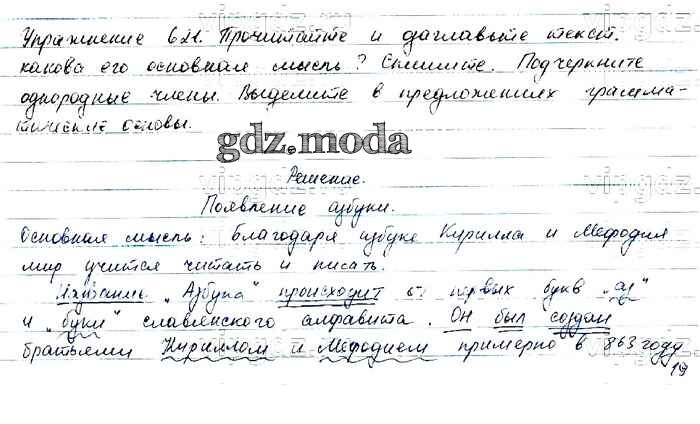 Упражнение 621. Прочитайте и озаглавьте текст.
какова его основная мысль? Спишите. Подчеркните
однородные члены. Выделите в предложениях грамма-
тические основы.
gdz.moda
Решение.
Появление азбуки.
Основная мысль: благодаря азбуке Кирилла и Мефодия
мир учится читать и писать.
"Азбука" происходит от первых букв "аз"
и "буки" славянского алфавита. Он был создан
братьями Кириллом и Мефодием примерно в 863 году
19